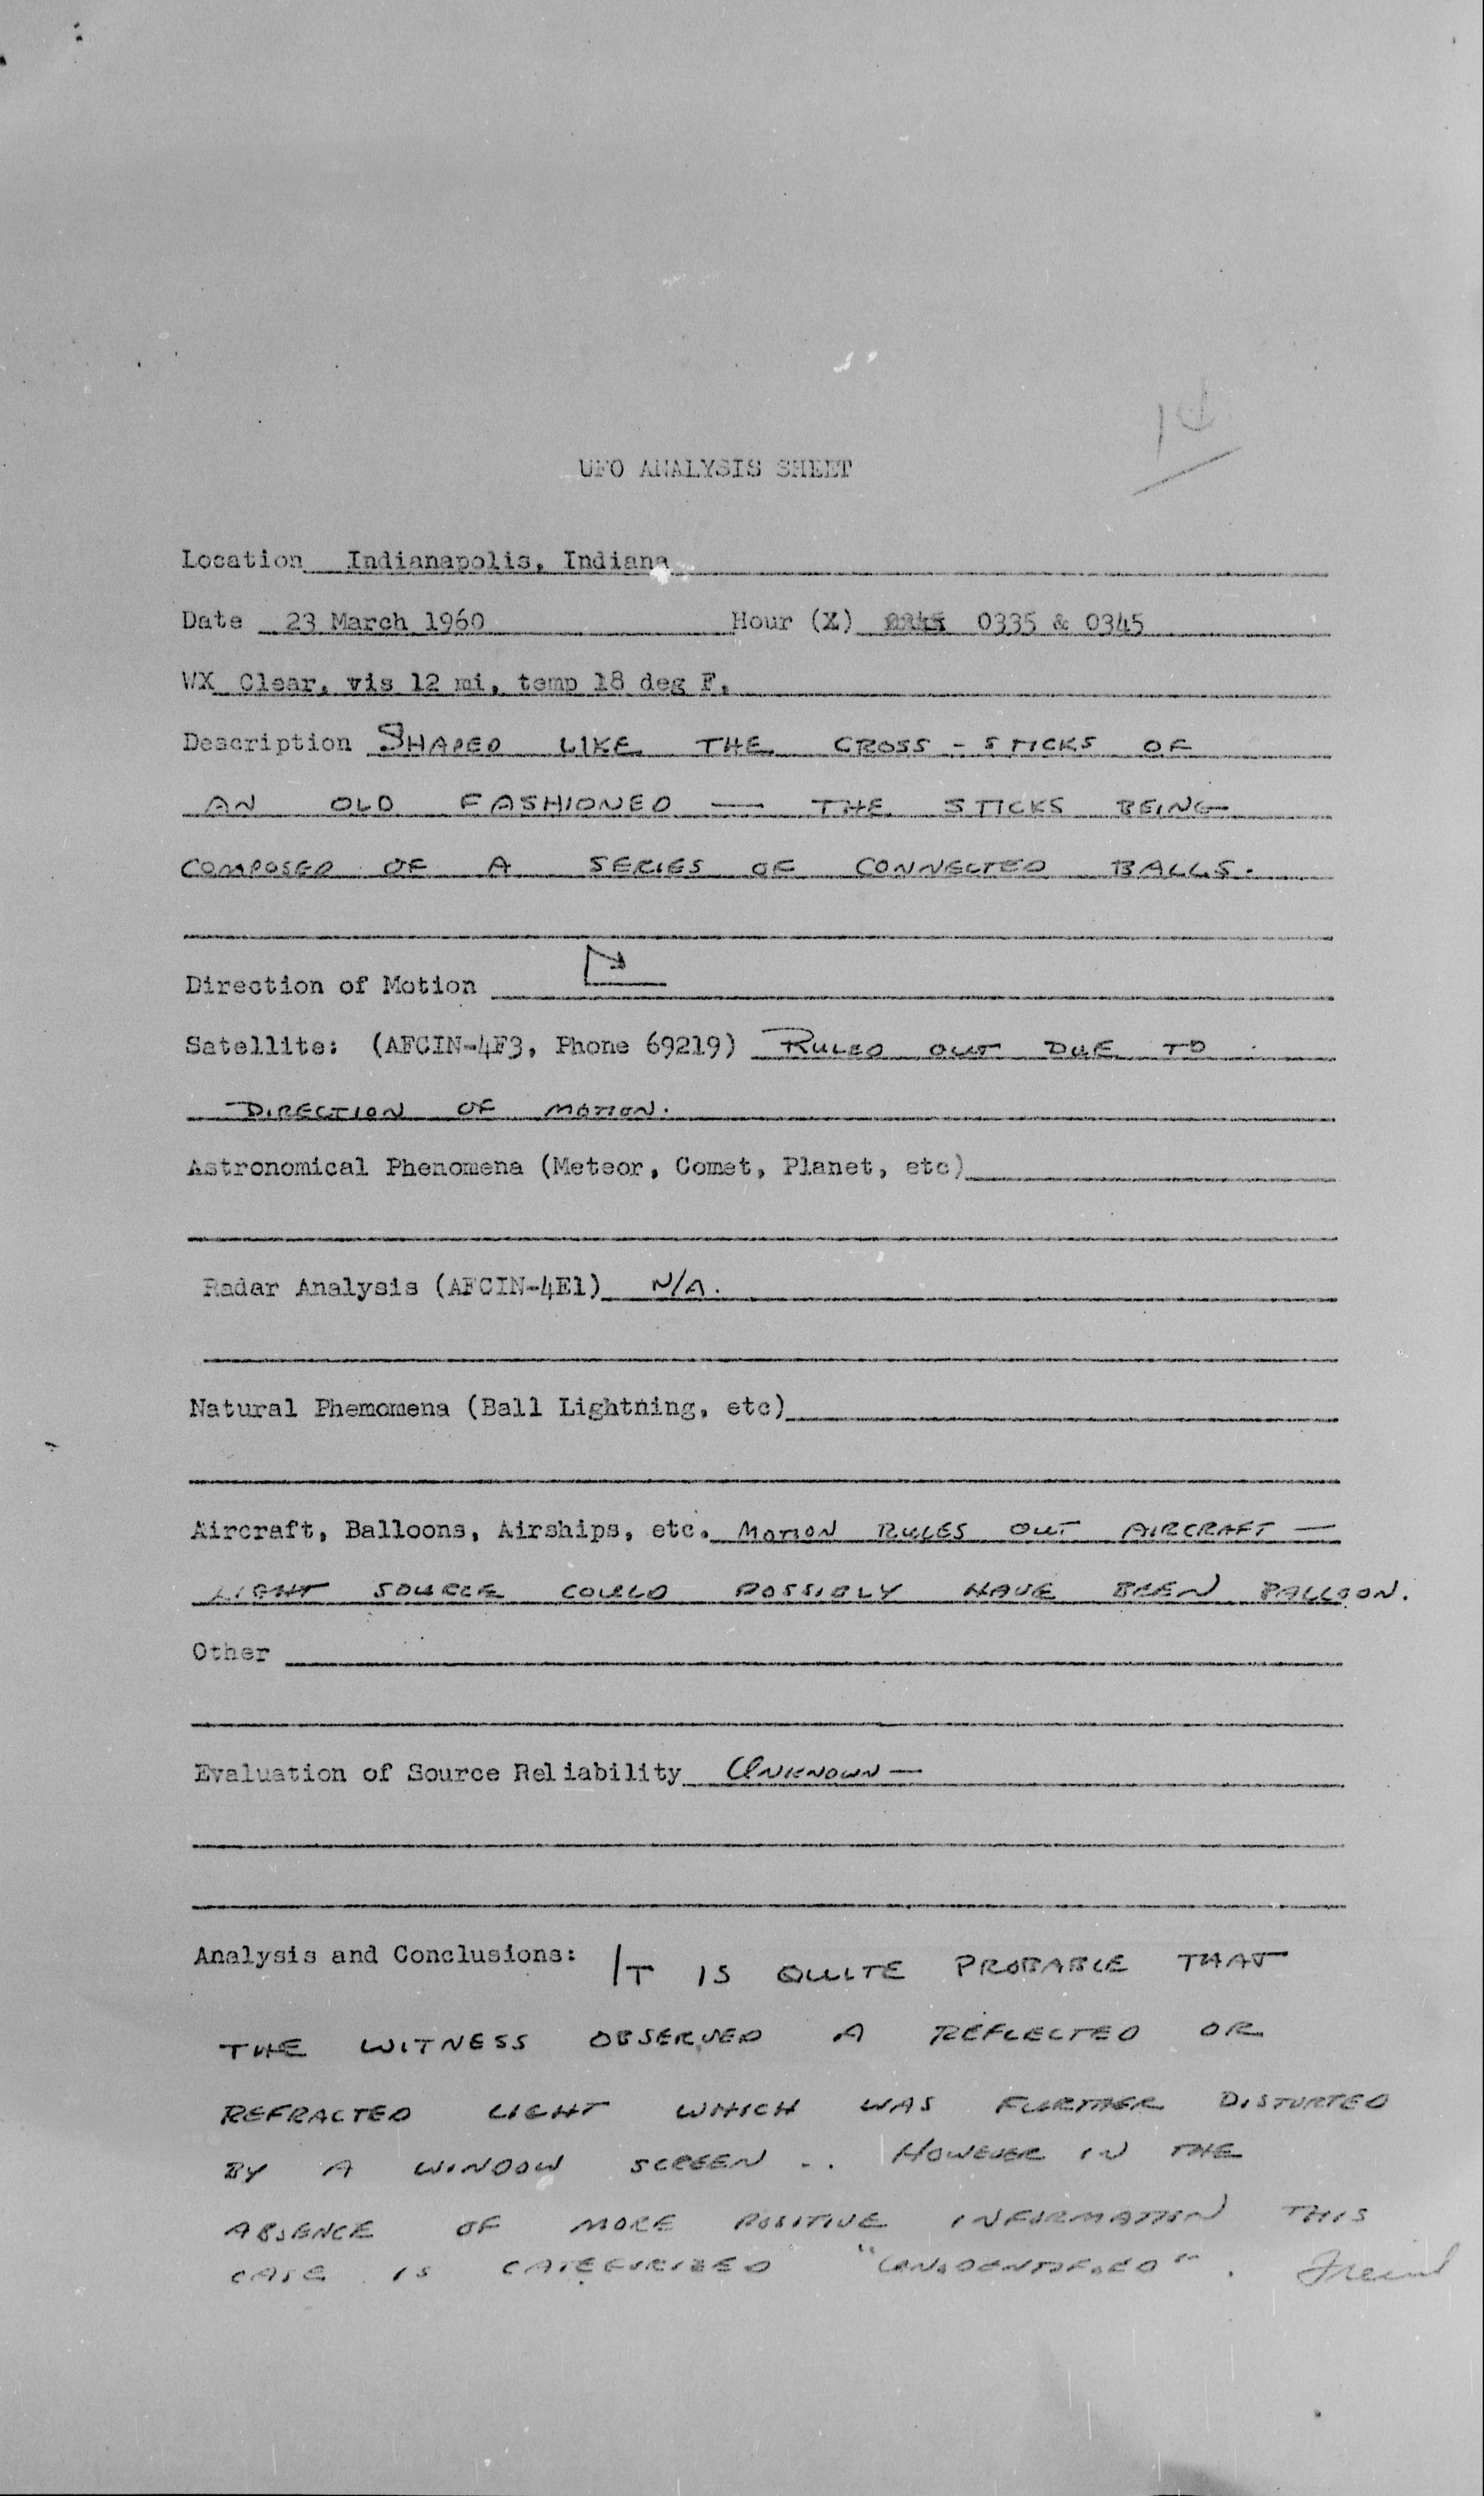 UFO ANALYSIS SHEET
Location Indianapolis, Indiana
Date 23 March 1960 Hour (Z) 0335 & 0345
WX Clear, vis 12 mi, temp 18 deg F.
Description SHAPED LIKE THE CROSS-STICKS OF
AN OLD FASHIONED — THE STICKS BEING
COMPOSED OF A SERIES OF CONNECTED BALLS.
Direction of Motion
Satellite: (AFCIN-4F3, Phone 69219) RULED OUT DUE TO
DIRECTION OF MOTION.
Astronomical Phenomena (Meteor, Comet, Planet, etc)
Radar Analysis (AFCIN-4E1) N/A.
Natural Phemomena (Ball Lightning, etc)
Aircraft, Balloons, Airships, etc. MOTION RULES OUT AIRCRAFT —
LIGHT SOURCE COULD POSSIBLY HAVE BEEN BALLOON.
Other
Evaluation of Source Reliability UNKNOWN —
Analysis and Conclusions: IT IS QUITE PROBABLE THAT
THE WITNESS OBSERVED A REFLECTED OR
REFRACTED LIGHT WHICH WAS FURTHER DISTORTED
BY A WINDOW SCREEN .. HOWEVER IN THE
ABSENCE OF MORE POSITIVE INFORMATION THIS
CASE IS CATEGORIZED "UNIDENTIFIED".